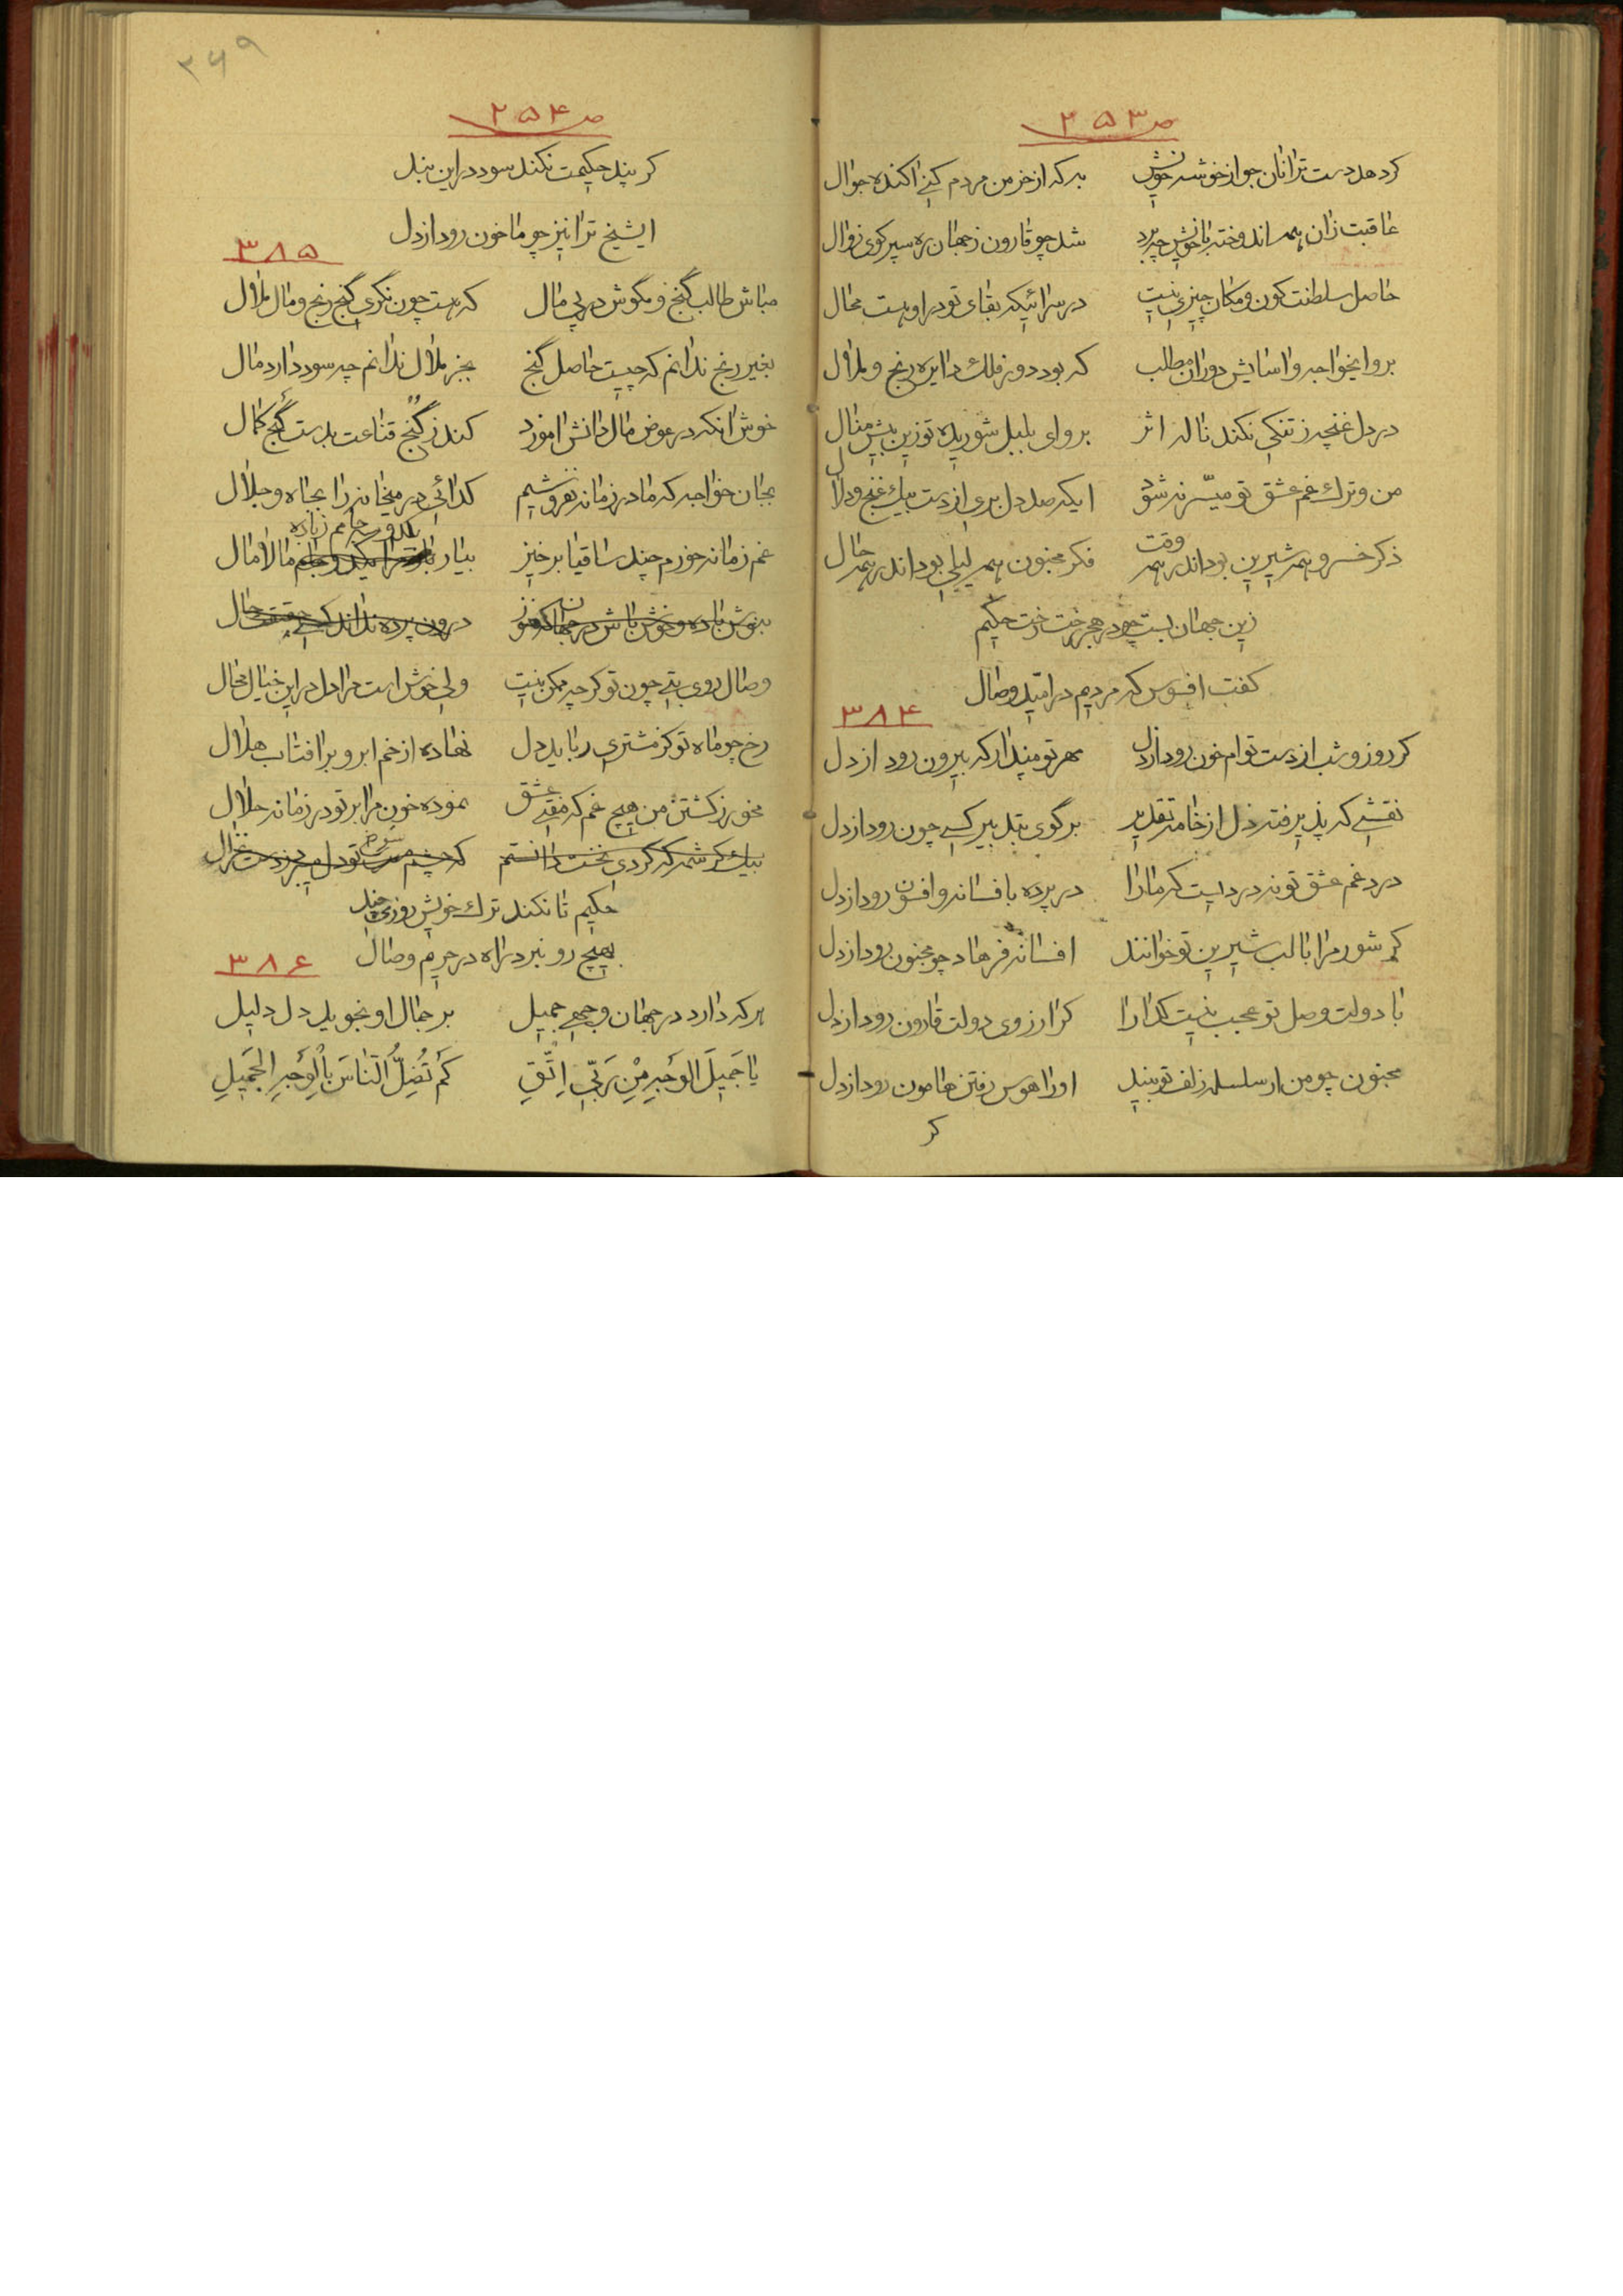 ص ۲۵۳
کر دهد دست ترا نان جو از خوشه خویش به که از خرمن مردم کنی اکنده جوال
عاقبت زان همه اندوخته با خویش چه برد شد چو قارون ز جهان ره سپر کوی زوال
حاصل سلطنت کون و مکان چیزی نیست در سرائیکه بقای تو در او هست محال
برو ایخواجه و اسایش دوران مطلب که بود دور فلک دایره رنج و ملال
در دل غنچه ز تنکی نکند ناله اثر برو ای بلبل شوریده تو زین بیش منال
من و ترک غم عشق تو میسّر نشود ایکه صد دل بری از دست بیک غنج و دلال
ذکر خسرو همه شیرین بود اندر همه وقت فکر مجنون همه لیلی بود اندر همه حال
زین جهان بست چو در هجر رخت رخت حکیم
کفت افسوس که مردیم در امّید وصال
۳۸۴
کر روز و شب از دست توام خون رود از دل مهر تو مپندار که بیرون رود از دل
نقشی که پذیرفته دل از خامه تقدیر بر گوی بتدبیر کسی چون رود از دل
درد غم عشق تو نه دردیست که ما را در پرده بافسانه و افسون رود از دل
کر شور مرا با لب شیرین تو خوانند افسانه فرهاد چو مجنون رود از دل
با دولت وصل تو عجب نیست کدا را کز ارزوی دولت قارون رود از دل
مجنون چو من ار سلسله زلف تو بیند او را هوس رفتن هامون رود از دل
کر
۲۶۹
ص ۲۵۴
کر پند حکیمت نکند سود در این بند
ایشیخ ترا نیز چو ما خون رود از دل
۳۸۵
مباش طالب گنج و مکوش در پی مال که هست چون نکری گنج رنج و مال ملال
بغیر رنج ندانم که چیست حاصل گنج بجز ملال ندانم چه سود دارد مال
خوش انکه در عوض مال دانش اموزد کند ز گنج قناعت بدست گنج کمال
بجان خواجه که ما در زمانه نفروشیم کدائی در میخانه را بجاه و جلال
غم زمانه خورم چند ساقیا برخیز بیار باده و جام مالامال
بنوش باده و خوش باش در جهان که هنوز درون پرده نداند کسی حقیقت حال
وصال روی بتی چون تو کر چه ممکن نیست ولی خوش است مرا دل در این خیال محال
رخ چو ماه تو کز مشتری رباید دل نهاده از خم ابرو بر افتاب هلال
مخور ز کشتن من هیچ غم که مفتی عشق نموده خون مرا بر تو در زمانه حلال
بیک کرشمه که کردی نخست دانستم که چشم مست تو دل میبرد ز دست غزال
حکیم تا نکند ترک خویش روزی چند
بهیچ رو نبرد راه در حریم وصال
۳۸۶
هر که دارد در جهان وجهی جمیل بر جمال او نجوید دل دلیل
یا جَمیلَ الوَجهِ مِنْ رَبّی اِتَّقِ کَم تُضِلُّ النّاسَ بِالْوَجهِ الجَمیلِ